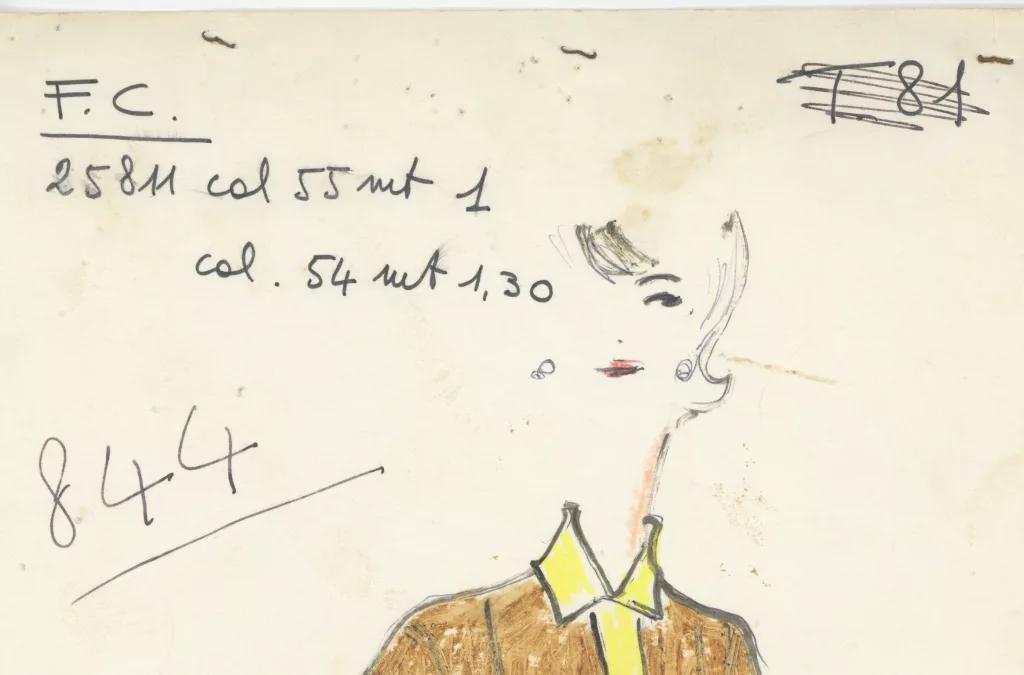 F.C.
T 81
25811 col 55 mt 1
col. 54 mt 1,30
844